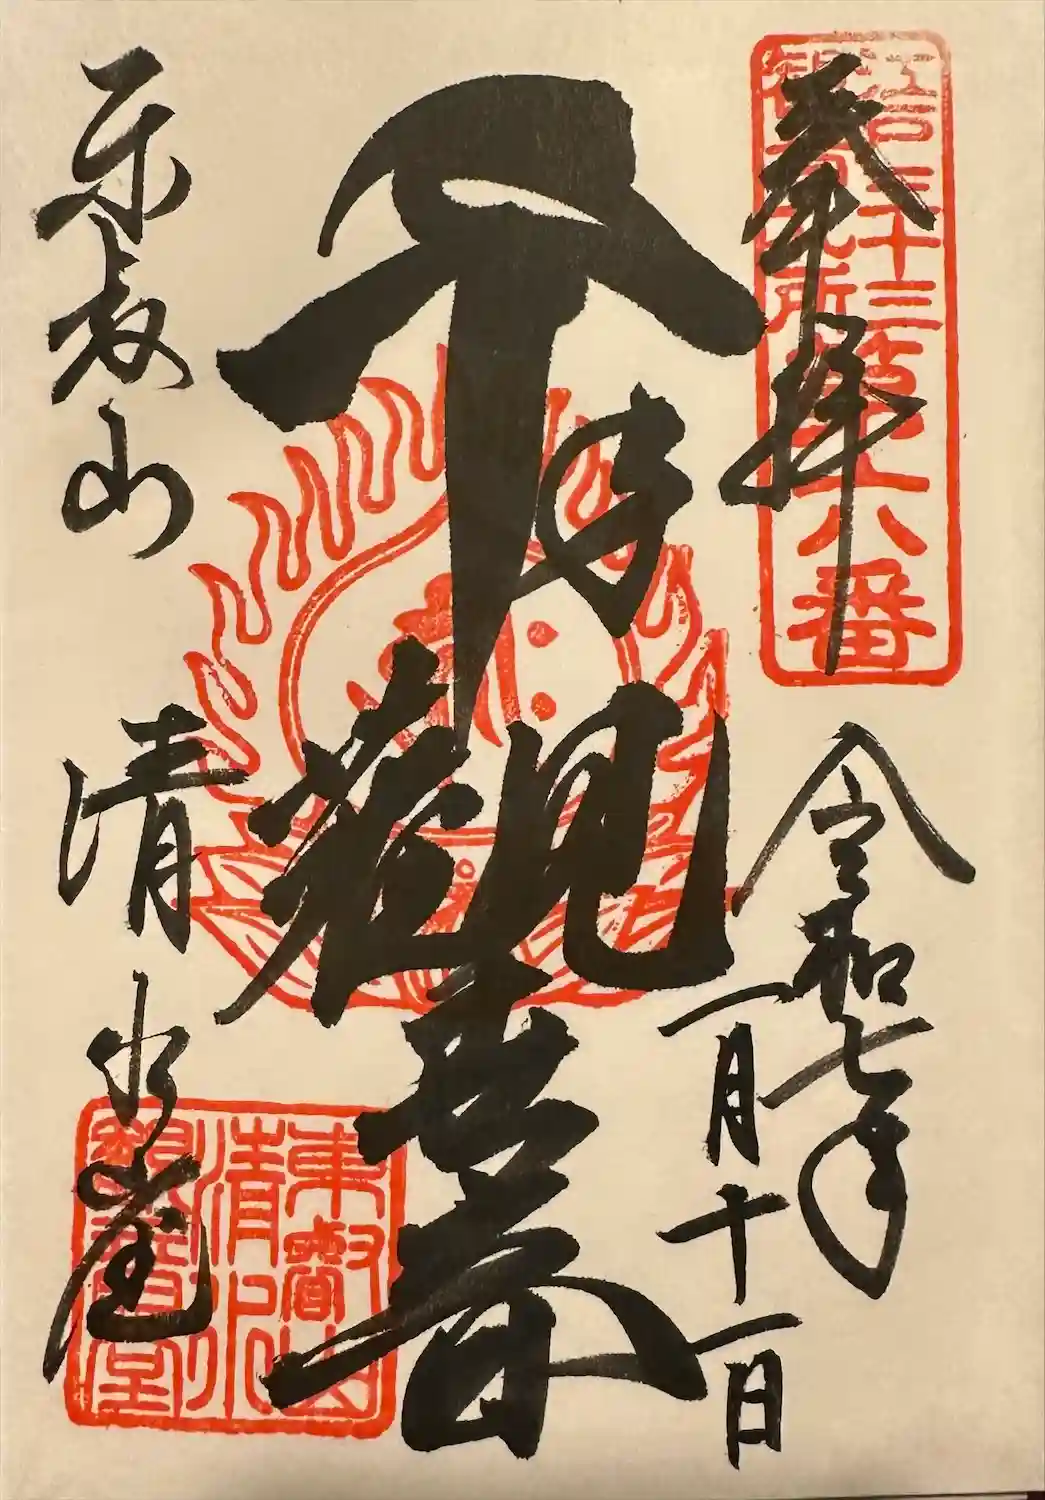 江戸三十三
観音札所
第六番
奉拝
令和七年
一月十一日
千手
観世音
東叡山
清水堂
東叡山
清水
観音堂